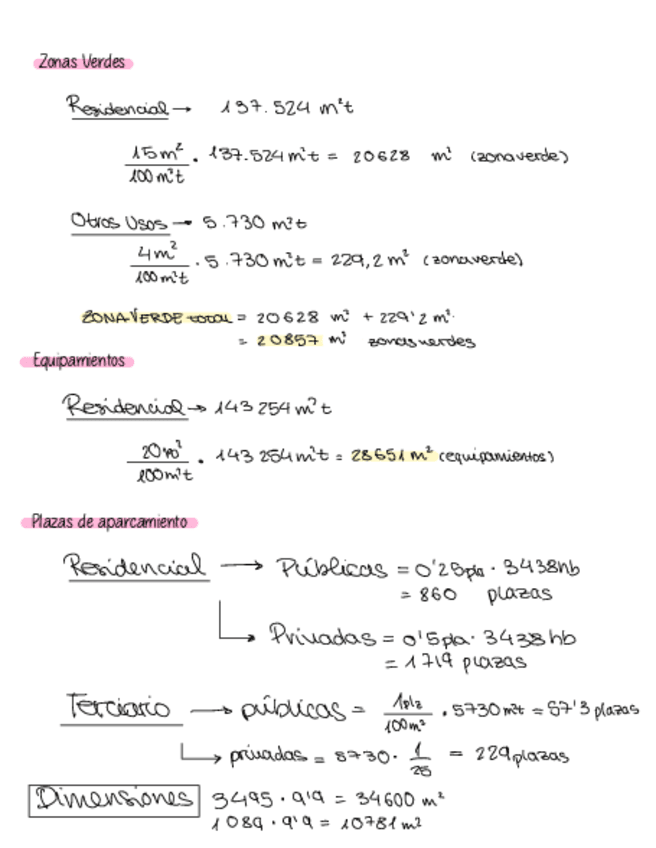 Zonas Verdes
Residencial → 137.524 m²t
15m²/100m²t · 137.524m²t = 20628 m² (zona verde)
Otros Usos → 5.730 m²t
4m²/100m²t · 5.730 m²t = 229,2 m² (zona verde)
ZONA VERDE TOTAL = 20628 m² + 229'2 m²
= 20857 m² zonas verdes
Equipamientos
Residencial → 143254 m²t
20m²/100m²t · 143254m²t = 28651 m² (equipamientos)
Plazas de aparcamiento
Residencial → Públicas = 0'25pla · 3438hb
= 860 plazas
→ Privadas = 0'5pla · 3438hb
= 1719 plazas
Terciario → públicas = 1plz/100m² · 5730m²t = 57'3 plazas
→ privadas = 5730 · 1/25 = 229plazas
Dimensiones 3495 · 9'9 = 34600 m²
1089 · 9'9 = 10781 m²